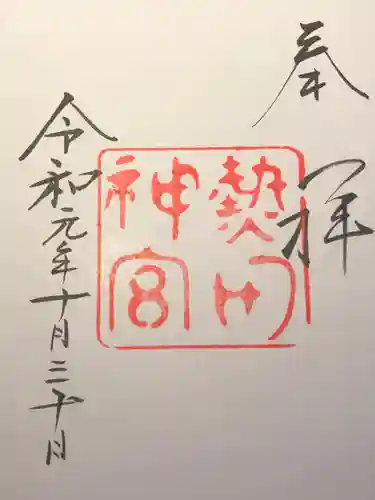 奉拝
熱田
神宮
令和元年十月三十日